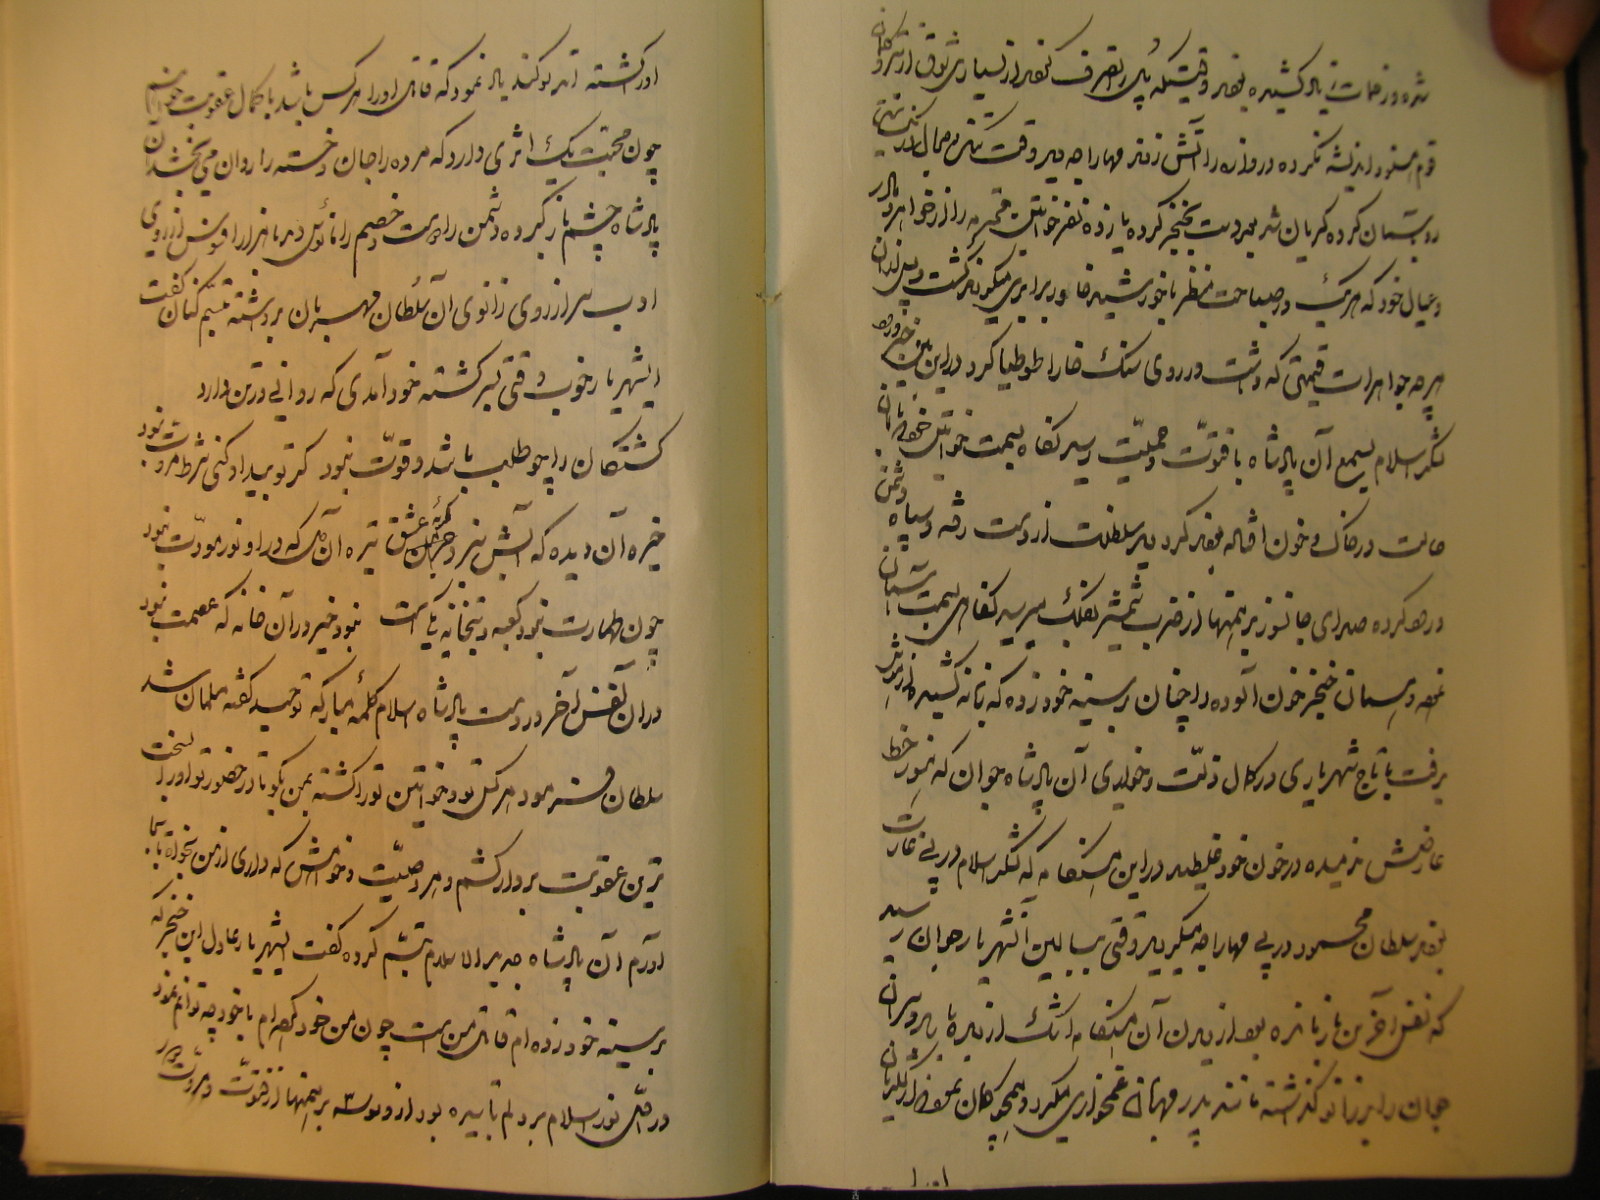 شده ورخمات زیاد کشیده بقصر وقتیکه پای بتصرف کفر از بسیاری شوق از
قوم هنود اندیشه نکرده دروازه را آتش زدند مهاراجه دید وقت تنگ و مجال
کرده گریان شد بعد دست بخنجر کرده یازده نفر خواتین محرمه را از خواهر و مادر
و عیال خود که هر یک در صباحت منظر با خورشید خاور برابری میکردند کشت
هر چه جواهرات قیمتی که داشت در روی سنگ خارا طوطیا کرد در این بین خبر ورود
لشکر اسلام بسمع آن پادشاه با فتوّت و حمیّت رسید نگاه بسمت خواتین
در خاک و خون افتاده بقصر کرد دید سلطنت از دست رفته و سپاه دشمن
در هم کرده صدای جانسوز برهمنها از ضرب شمشیر بفلک میرسید نگاهی بسمت آسمان
خنجر خون آلوده را چنان بر سینه خود زده که تا نه کشید
برفت با تاج شهریاری در کمال ذلّت و خواری آن پادشاه جوان که هنوز خط
عارضش ندمیده در خون خود غلطید در این هنگامه که لشکر اسلام در پی غارت
بودند سلطان محمود در پی مهاراجه میگردید وقتی ببالین آنشهریار جوان رسید
که نفس آخرین باز مانده بود از دیدن آن هنگامه اشک از دیده
جوان را بر زانو گذاشته مانند پدر مهربان غمخواری میکرد و همچو گمان نمود که از
او را کشته اند سوگند یاد نمود که قاتل او را هر کس باشد با کمال عقوبت
چون محبّت یک اثری دارد که مرده را جان و خسته را روان می بخشد آن
پادشاه چشم باز کرده دشمن را دوست و خصم را مأنوس دید با هزار افسوس از روی
ادب سر از روی زانوی آن سلطان مهربان برداشته تبسّم کنان گفت
ایشهریار خوب وقتی بسر کشته خود آمدی که روانی در تن دارد
کشتگان را چو طلب باشد و قوّت نبود گر تو بیداد کنی شرط مروّت نبود
خیره آن دیده که آبش نبرد گریه عشق تیره آن دل که در او نور مودّت نبود
چون طهارت نبود کعبه و بتخانه یکیست نبود خیر در آن خانه که عصمت نبود
در آن نفس آخر در دست پادشاه اسلام کلمه مبارکه توحید گفته مسلمان شد
سلطان فرمود هر کس تو و خواتین تو را کشته بمن بگو تا در حضور تو او را بسخت
ترین عقوبت بر دار کشم و هر وصیّت و خواهش که داری از من بخواه تا بجا
آورم آن پادشاه جدید الاسلام تبسّم کرده گفت ایشهریار عادل این خنجر که
بر سینه خود زده ام قاتل من است چون من خود کرده ام با خود چه توانم نمود
در اوّل نور اسلام بر دلم تابیده بود از وسوسه برهمنها از فتوّت و مروّت